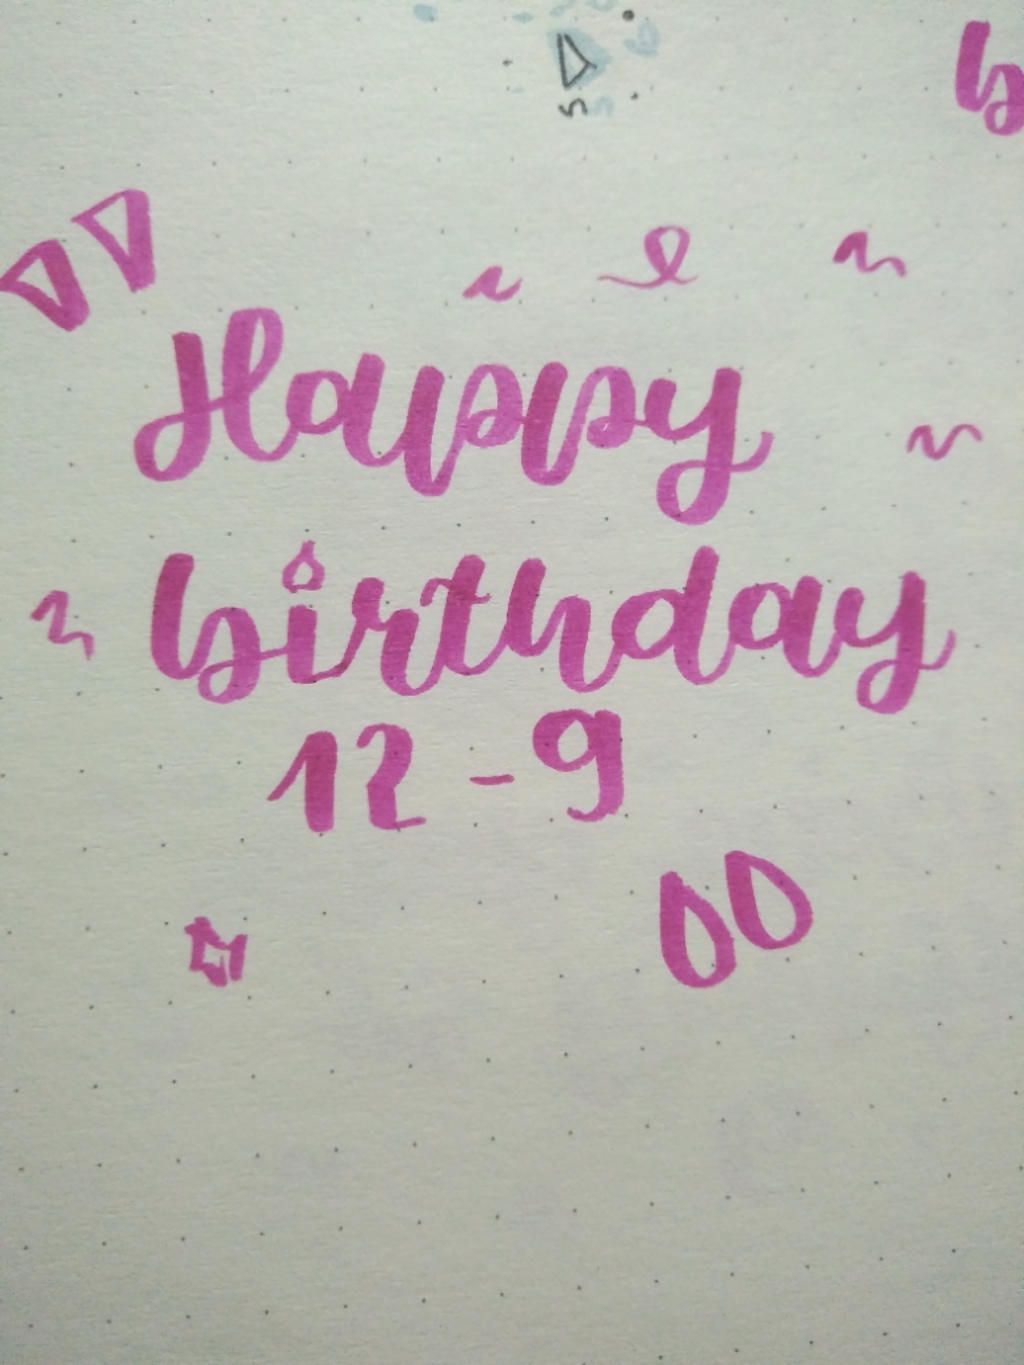 Happy
birthday
12-9